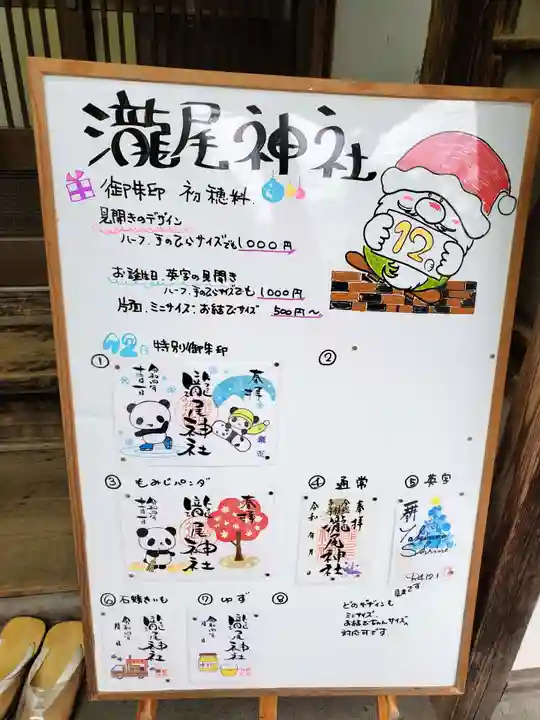 瀧尾神社
御朱印 初穂料.
見開きのデザイン
ハーフ、手のひらサイズでも 1000円
お誕生日.英字の見開き
ハーフ、手のひらサイズでも 1000円
片面、ミニサイズ:お結びサイズ 500円〜
12月
12月 特別御朱印
① ②
奉拝
瀧尾神社
令和四年
十二月一日
③ もみじパンダ
奉拝
瀧尾神社
令和四年
十二月一日
④ 通常
奉拝
瀧尾神社
令和 年 月
⑤ 英字
奉拝
Shrine
見本です
⑥ 石焼きいも
瀧尾神社
令和四年
月 日
⑦ ゆず
瀧尾神社
令和四年
月 日
⑧
どのデザインも
ミニサイズ、
お結びちゃんサイズ、
対応可です。